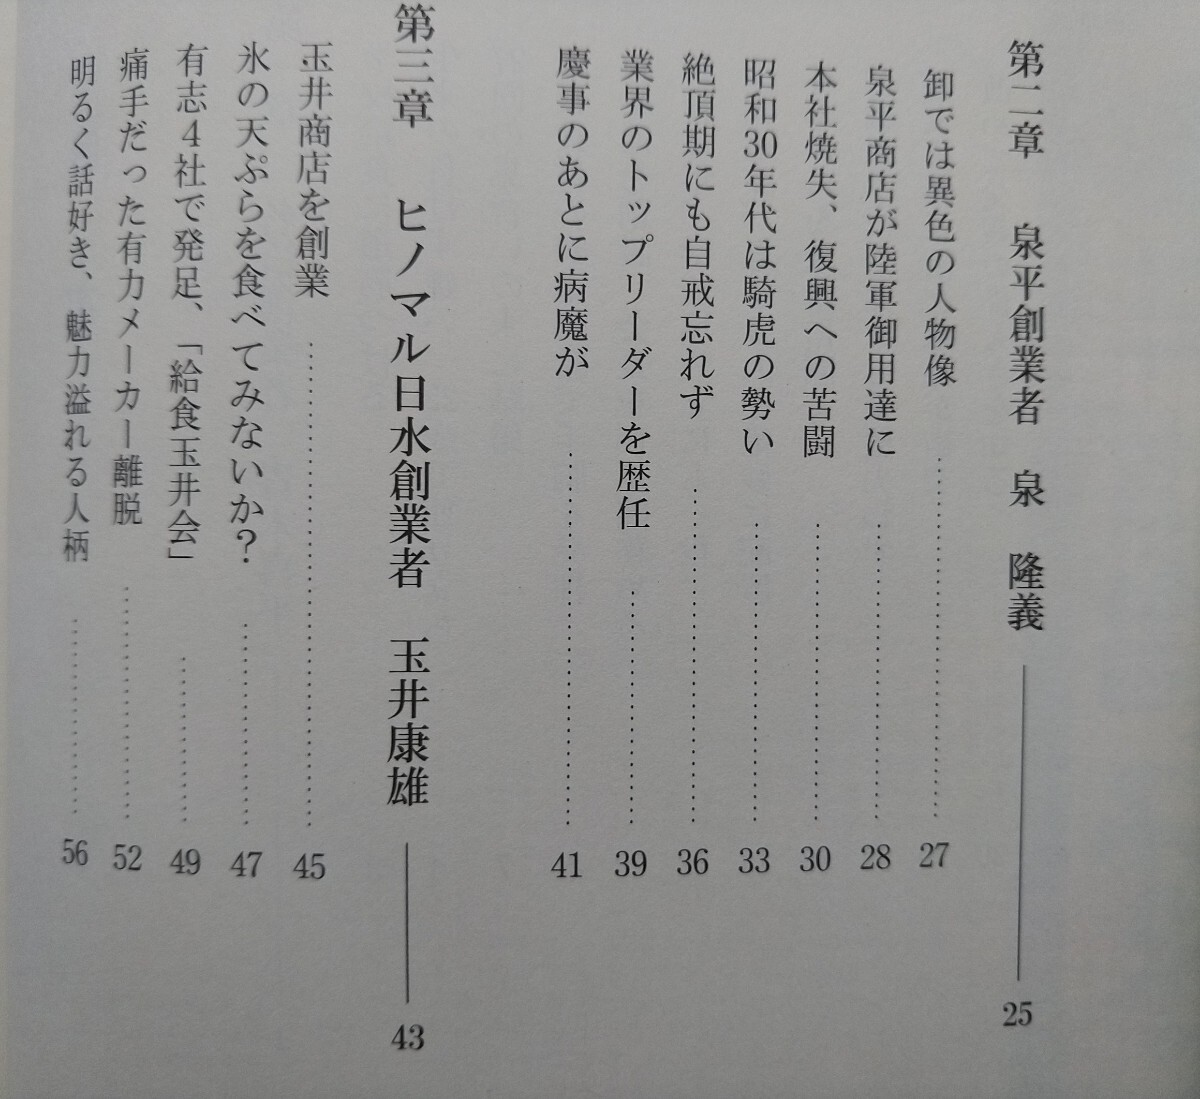 第二章 泉平創業者 泉 隆義 25
卸では異色の人物像 27
泉平商店が陸軍御用達に 28
本社焼失、復興への苦闘 30
昭和30年代は騎虎の勢い 33
絶頂期にも自戒忘れず 36
業界のトップリーダーを歴任 39
慶事のあとに病魔が 41
第三章 ヒノマル日水創業者 玉井康雄 43
玉井商店を創業 45
氷の天ぷらを食べてみないか? 47
有志4社で発足、「給食玉井会」 49
痛手だった有力メーカー離脱 52
明るく話好き、魅力溢れる人柄 56